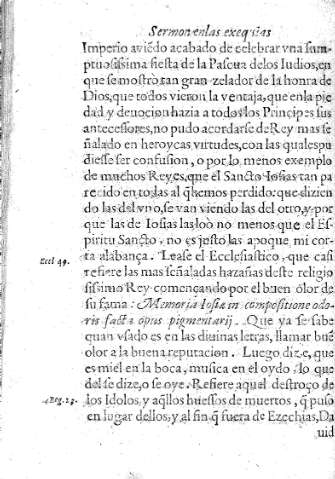 Sermon en las exequias
Imperio auiẽdo acabado de celebrar vna sum-
ptuosissima fiesta de la Pascua delos Iudios, en
que se mostrò tan gran zelador de la honra de
Dios, que todos vieron la ventaja, que en la pie
dad y deuocion hazia a todos los Principes sus
antecessores, no pudo acordarse de Rey mas se
ñalado en heroycas virtudes, con las quales pu
diesse ser confusion, o por lo menos exemplo
de muchos Reyes, que el Sancto Iosias tan pa
recido en todas al q̃ hemos perdido: que dizien
do las del vno, se van viendo las del otro, y por
que las de Iosias las loò no menos que el Es-
piritu Sancto, no es justo las apoque mi cor-
ta alabança. Lease el Ecclesiastico, que casi
Eccl 49.
refiere las mas señaladas hazañas deste religio
sissimo Rey començando por el buen olor de
su fama: Memoria Iosiæ in compositione odo-
ris facta opus pigmentarij. Que ya se sabe
quan vsado es en las diuinas letras, llamar buẽ
olor a la buena reputacion. Luego dize, que
es miel en la boca, musica en el oydo lo que
del se dize, o se oye. Refiere aquel destroço de
4. Reg. 23.
los Idolos, y aq̃llos huessos de muertos, q̃ puso
en lugar dellos, y al fin q̃ fuera de Ezechias, Da
uid